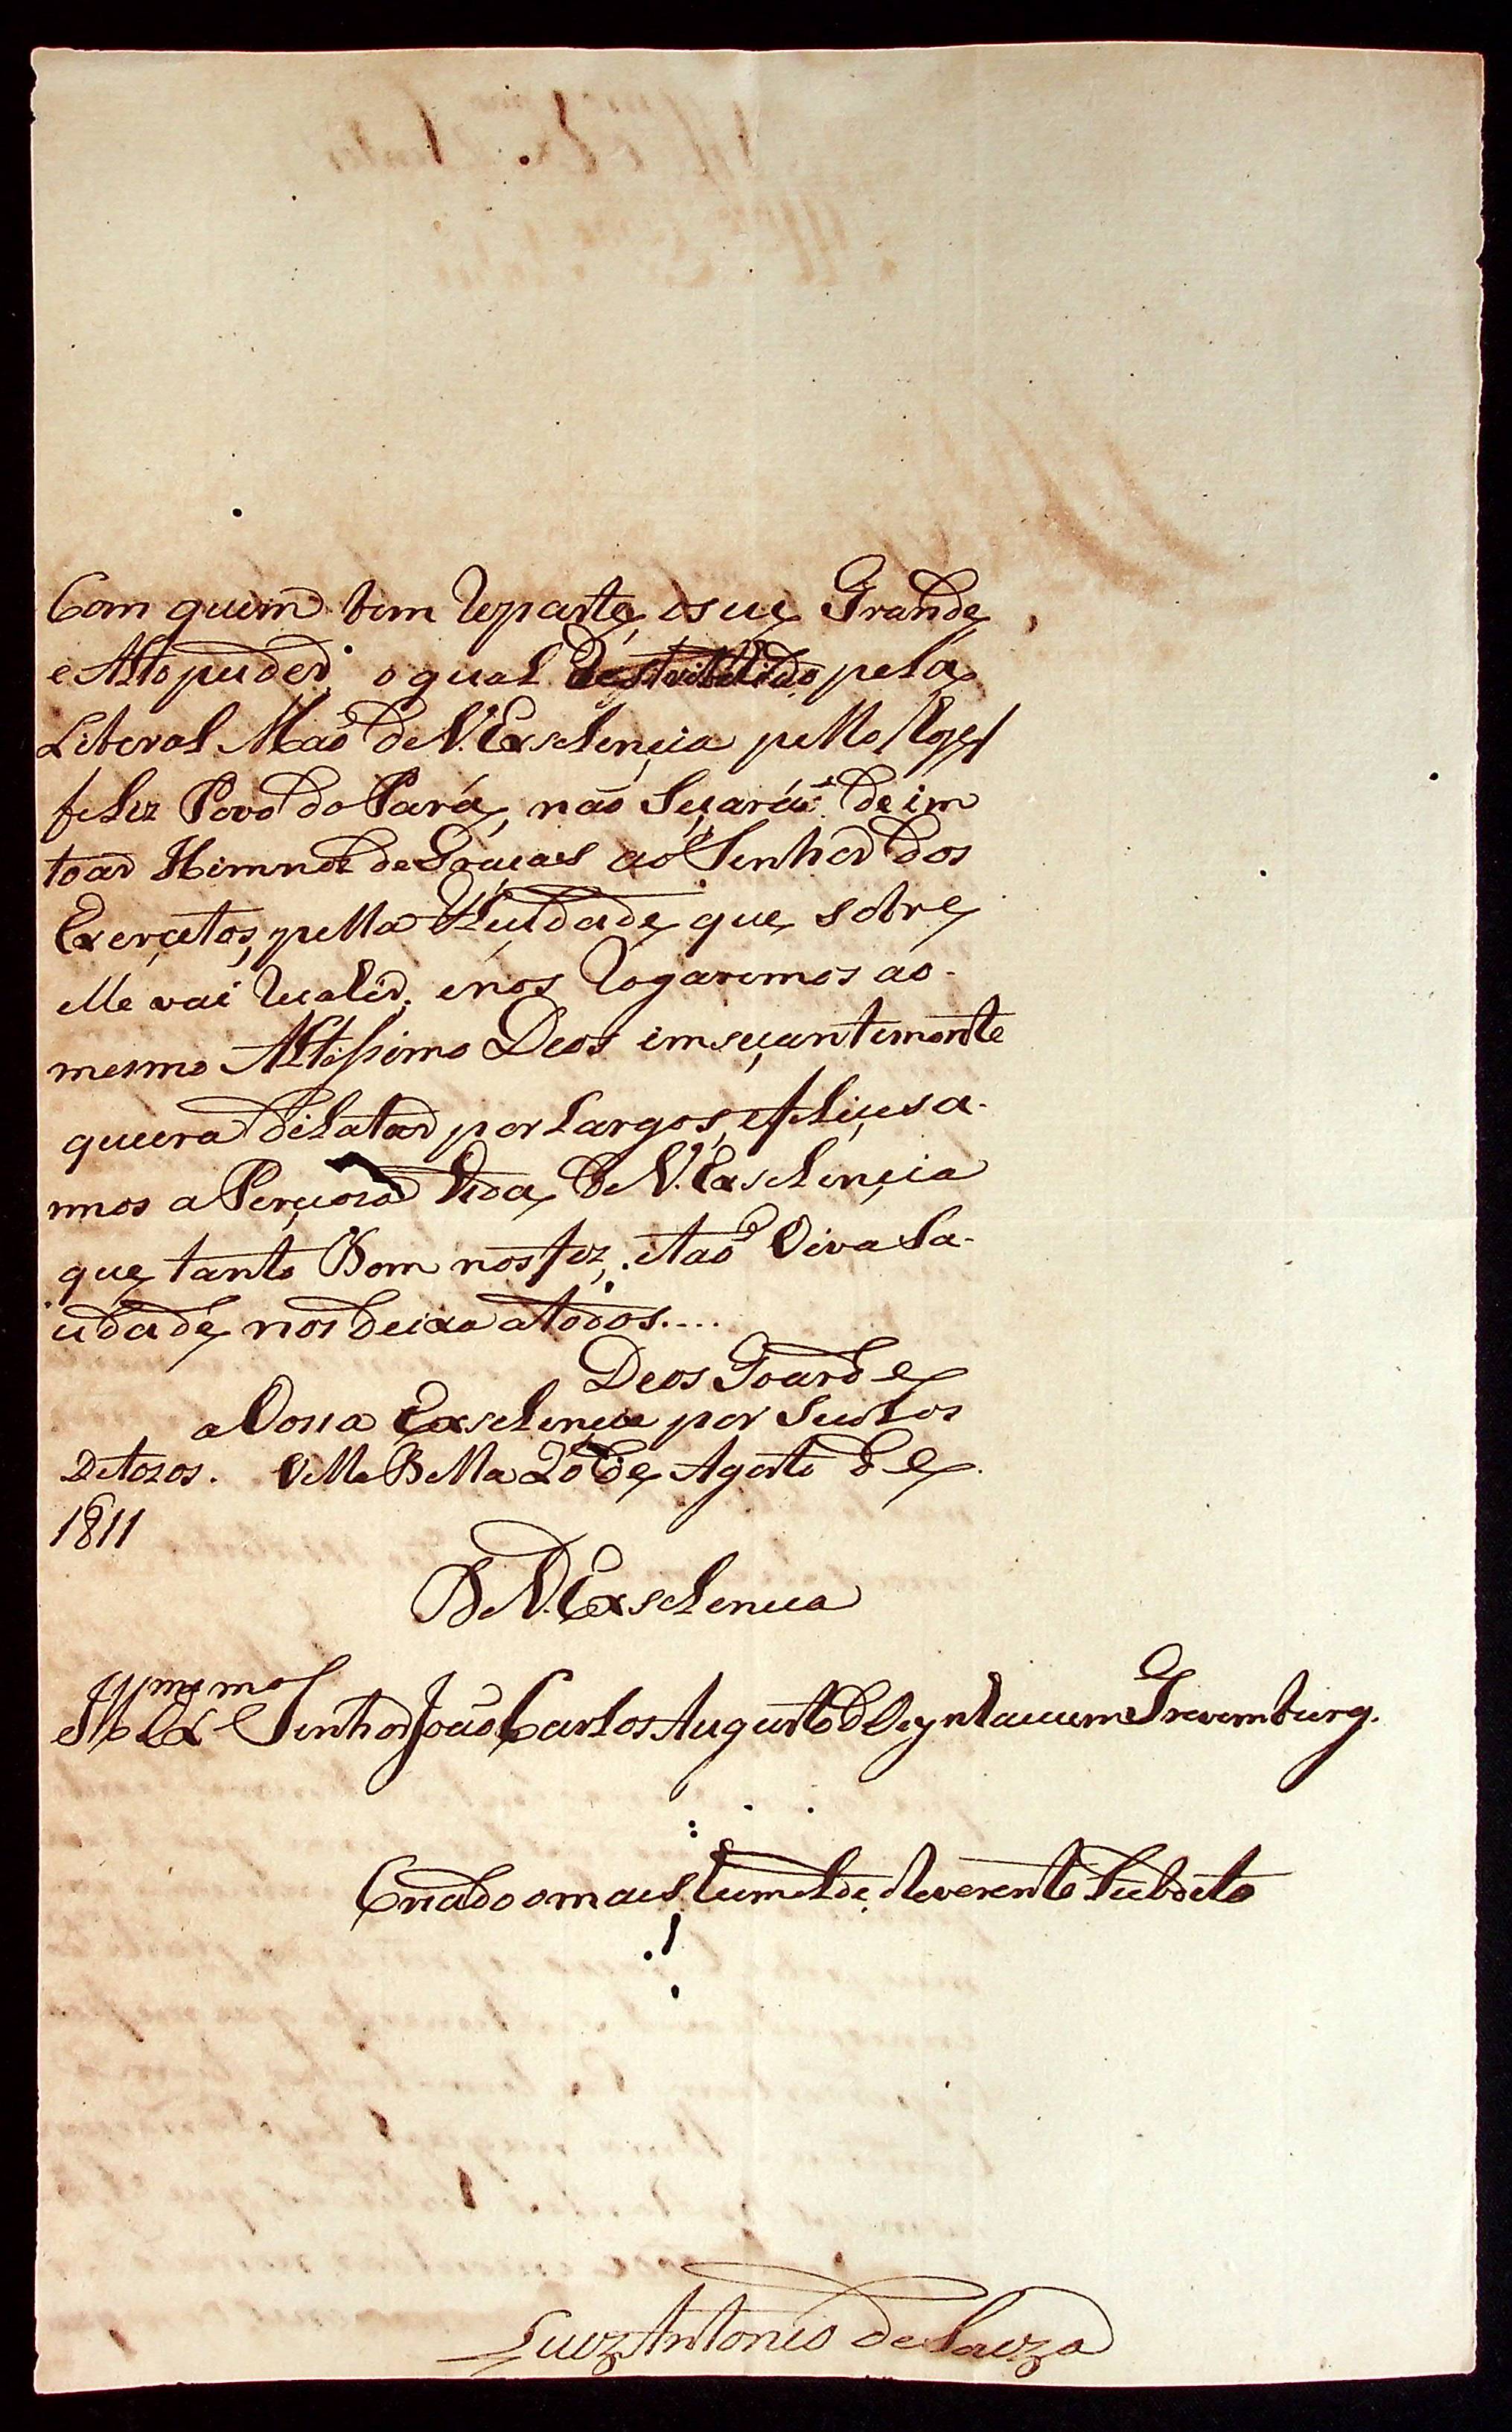 Com quem bem Reparte, o seu Grande,
e Alto puder, o qual destribuido pela
Liberal Maõ de V. Exselencia pello
felis Povo do Pará, naõ seçará de im
toar Himnos de Graças ao Senhor dos
Exerçetos, pella que sobre
elle vai Recahir. e nos Rogaremos ao
mesmo Altissimo Deos imseçantemente
queira dilatar por Largos, e feliçes a-
nnos a Perçioza Vida de V. Exselençia
que tanto Bem nos fez, e taõ Viva Sa-
udade nos deixa a todos....
Deos Goarde
a Vossa Exselençia por Seculos
Ditozos. Villa Bella 20 de Agosto de
1811
De V. Exselencia
Illmo e Exmo Senhor Joaõ Carlos Augusto D Oeynhaucem Grevemburg.
Criado o mais humelde, Reverente Subdeto
Luiz Antonio de Souza